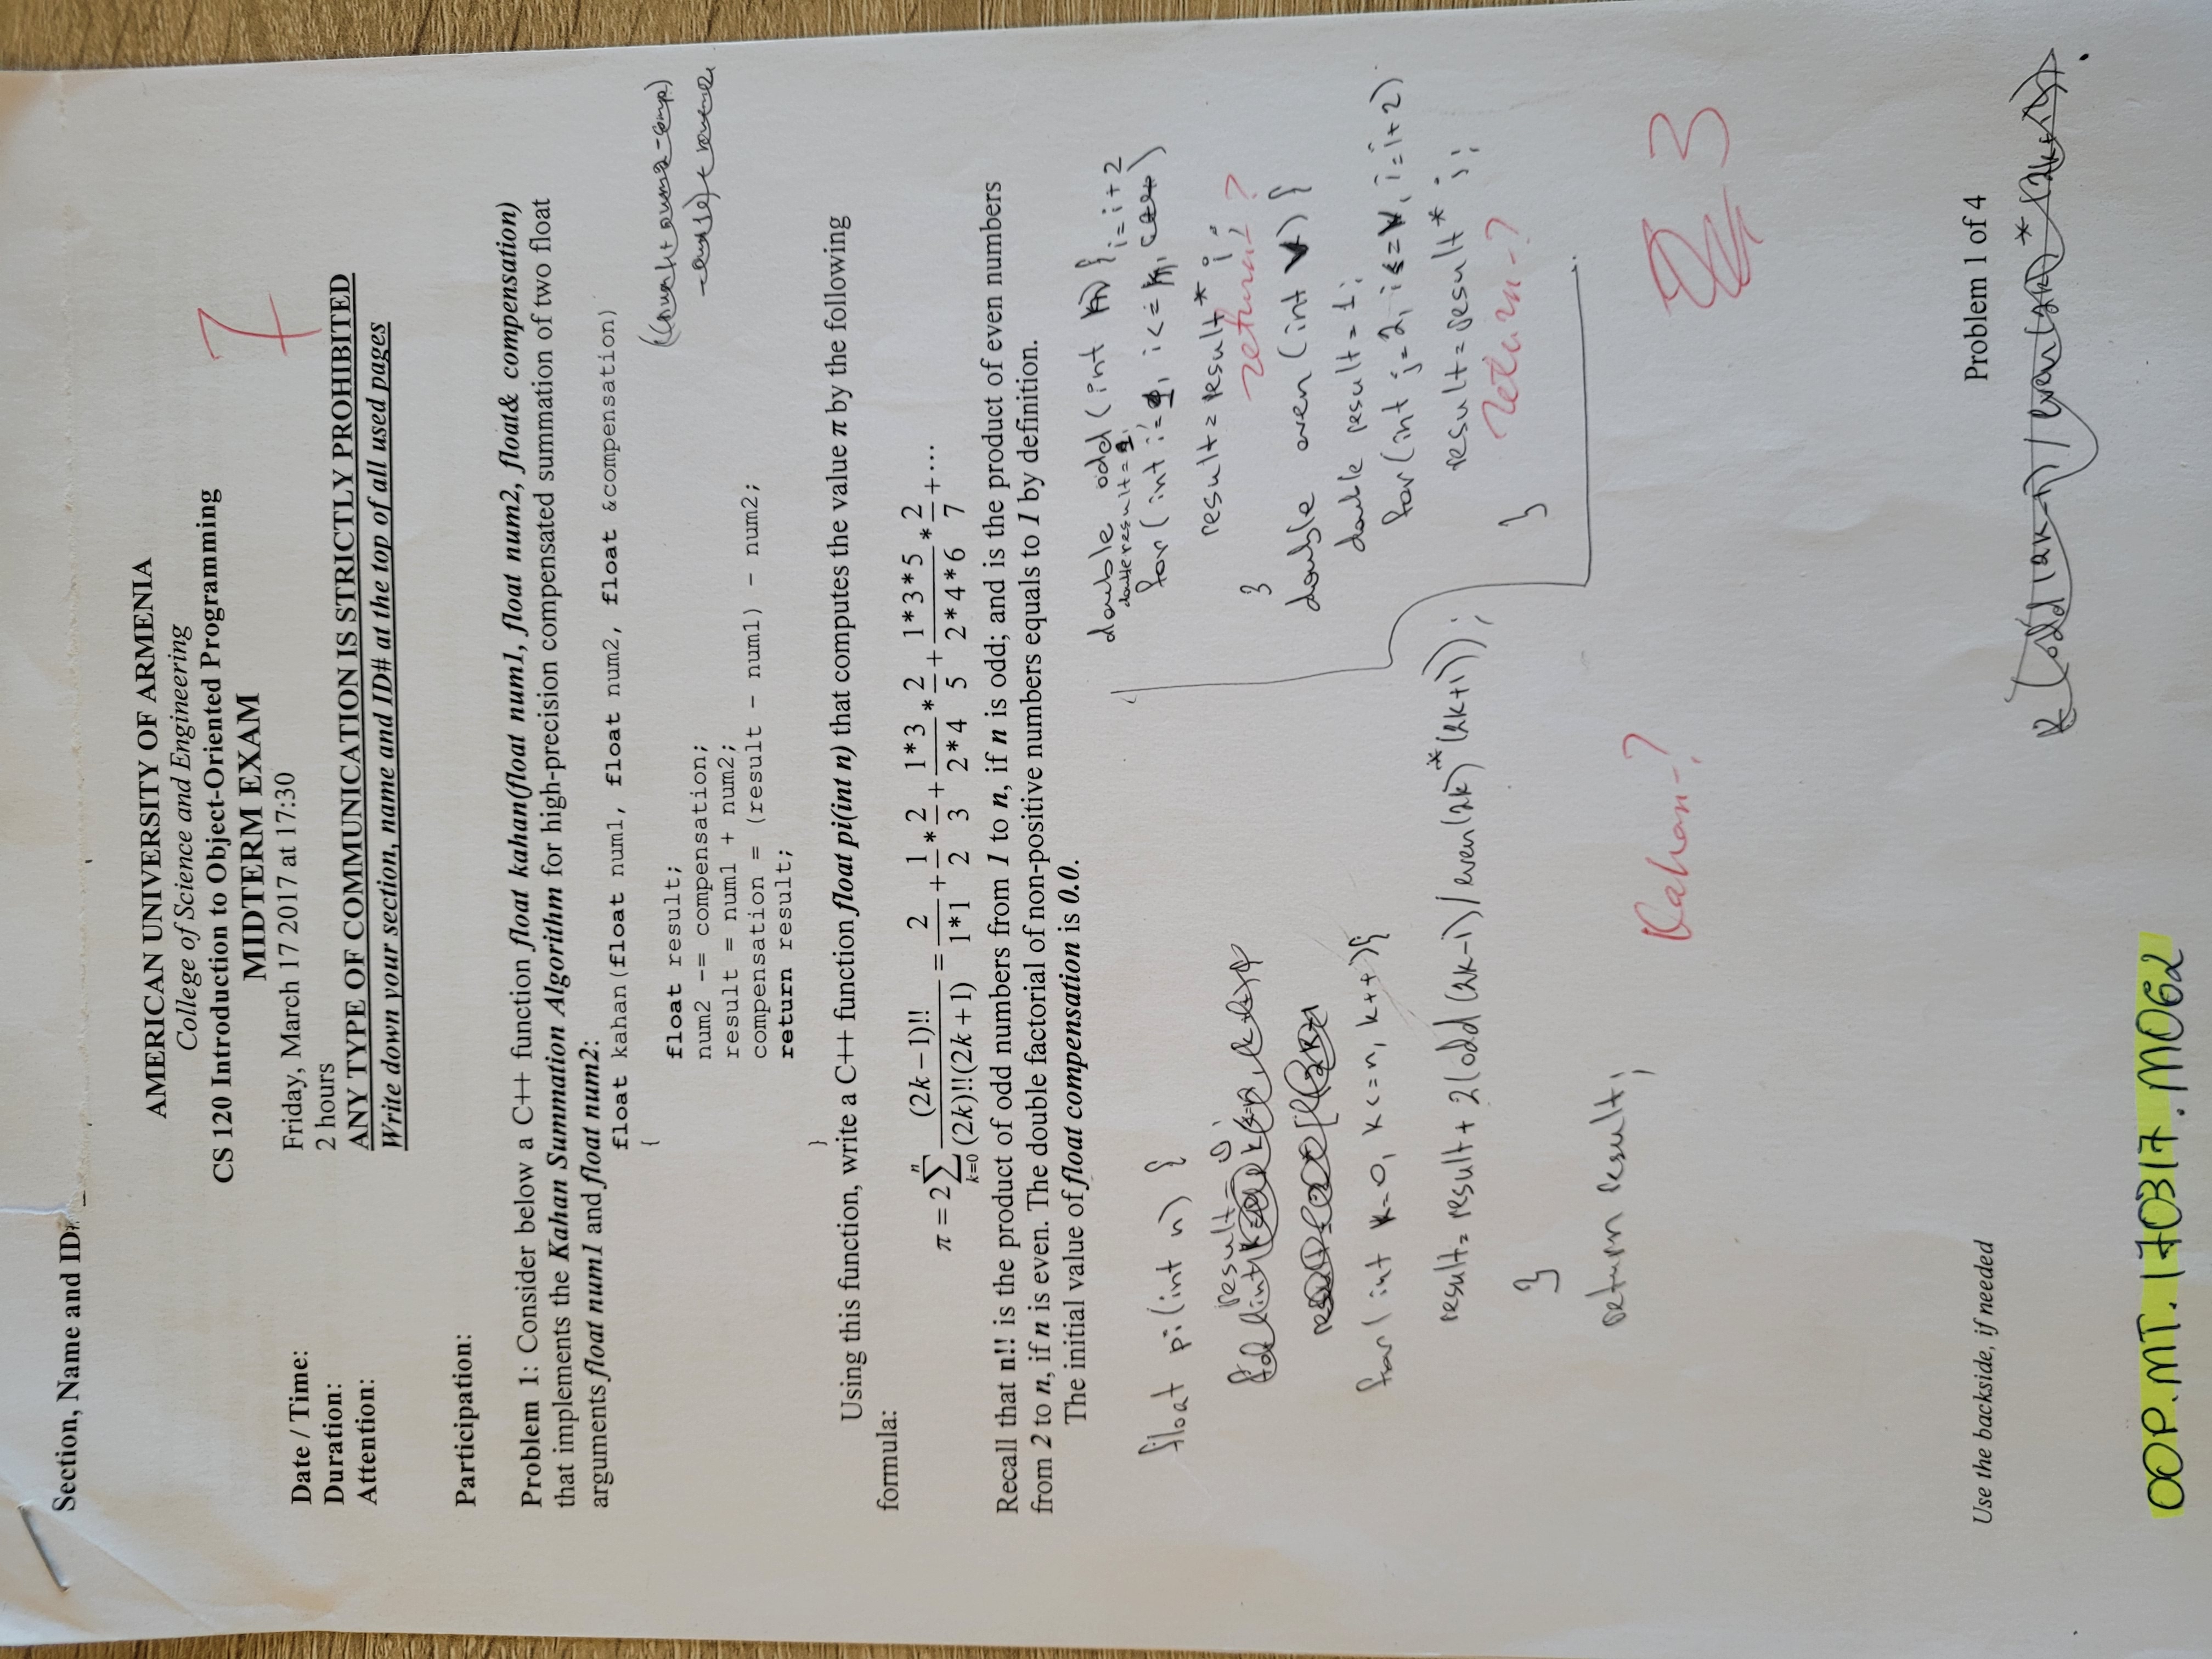 Section, Name and ID#
AMERICAN UNIVERSITY OF ARMENIA
College of Science and Engineering
CS 120 Introduction to Object-Oriented Programming
MIDTERM EXAM
7
Date / Time: Friday, March 17 2017 at 17:30
Duration: 2 hours
Attention: ANY TYPE OF COMMUNICATION IS STRICTLY PROHIBITED
Write down your section, name and ID# at the top of all used pages
Participation:
Problem 1: Consider below a C++ function float kahan(float num1, float num2, float& compensation)
that implements the Kahan Summation Algorithm for high-precision compensated summation of two float
arguments float num1 and float num2:
float kahan(float num1, float num2, float &compensation)
{
float result;
num2 -= compensation;
result = num1 + num2;
compensation = (result - num1) - num2;
return result;
}
((num1+num2-comp)
Using this function, write a C++ function float pi(int n) that computes the value π by the following
formula:
π = 2∑ n k=0 (2k-1)!! / (2k)!!(2k+1) = 2 / 1*1 + 1/2 * 2/3 + 1*3 / 2*4 * 2/5 + 1*3*5 / 2*4*6 * 2/7 + ···
Recall that n!! is the product of odd numbers from 1 to n, if n is odd; and is the product of even numbers
from 2 to n, if n is even. The double factorial of non-positive numbers equals to 1 by definition.
The initial value of float compensation is 0.0.
float pi(int n) {
result = 0;
for(int k=0, k<=n, k++){
result = result + 2(odd(2k-1)/even(2k)*(2k+1));
}
return result;
double odd (int n) {
double result = 1;
i=i+2
for (int i=1, i<=n,
result = result * i;
return-?
}
double even (int k) {
double result = 1;
for (int j=2, i<=k, i=i+2)
result = result * j;
return-?
}
Kahan-?
3
Use the backside, if needed
Problem 1 of 4
(odd(2k-1)/even(2k)*(2k+1))
OOP.MT.170317.M062